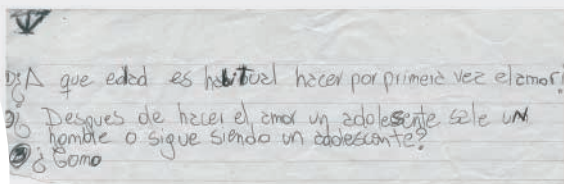 1)¿A que edad es habitual hacer por primera vez el amor?
2)¿ Despues de hacer el amor un adolesente sale un
hombre o sigue siendo un adolescente?
3)¿ Como